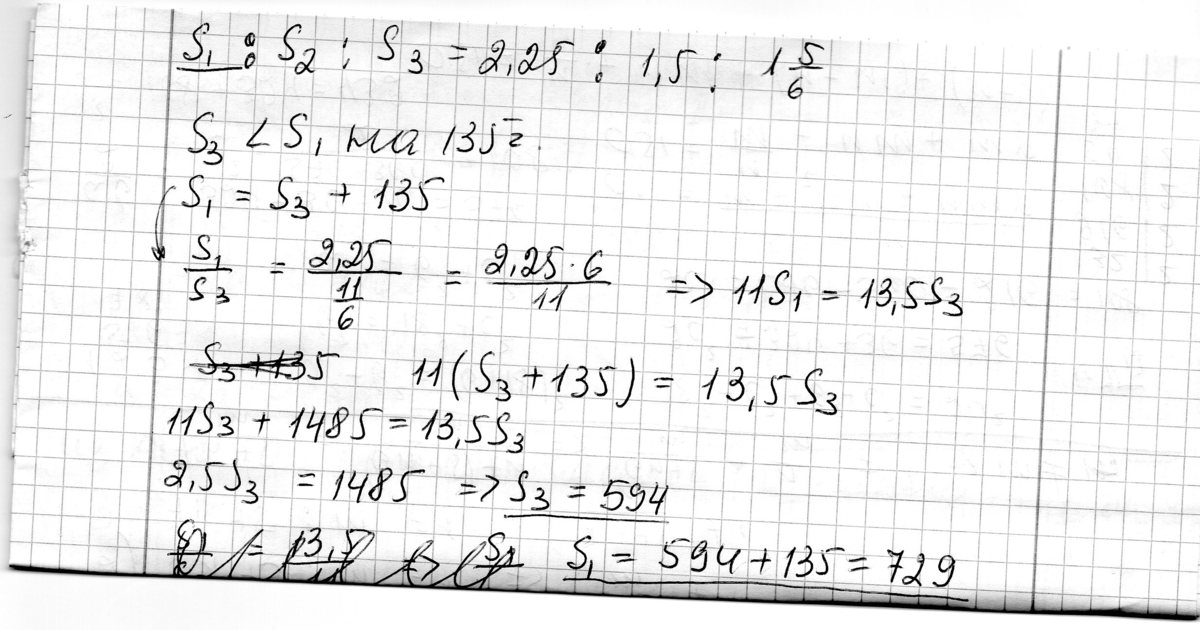 S₁ : S₂ : S₃ = 2,25 : 1,5 : 1 5/6
S₃ < S₁ на 135г.
S₁ = S₃ + 135
S₁/S₃ = 2,25/(11/6) = 2,25·6/11 => 11S₁ = 13,5S₃
S₃ + 135 11(S₃ + 135) = 13,5S₃
11S₃ + 1485 = 13,5S₃
2,5S₃ = 1485 => S₃ = 594
S₁ = 594 + 135 = 729